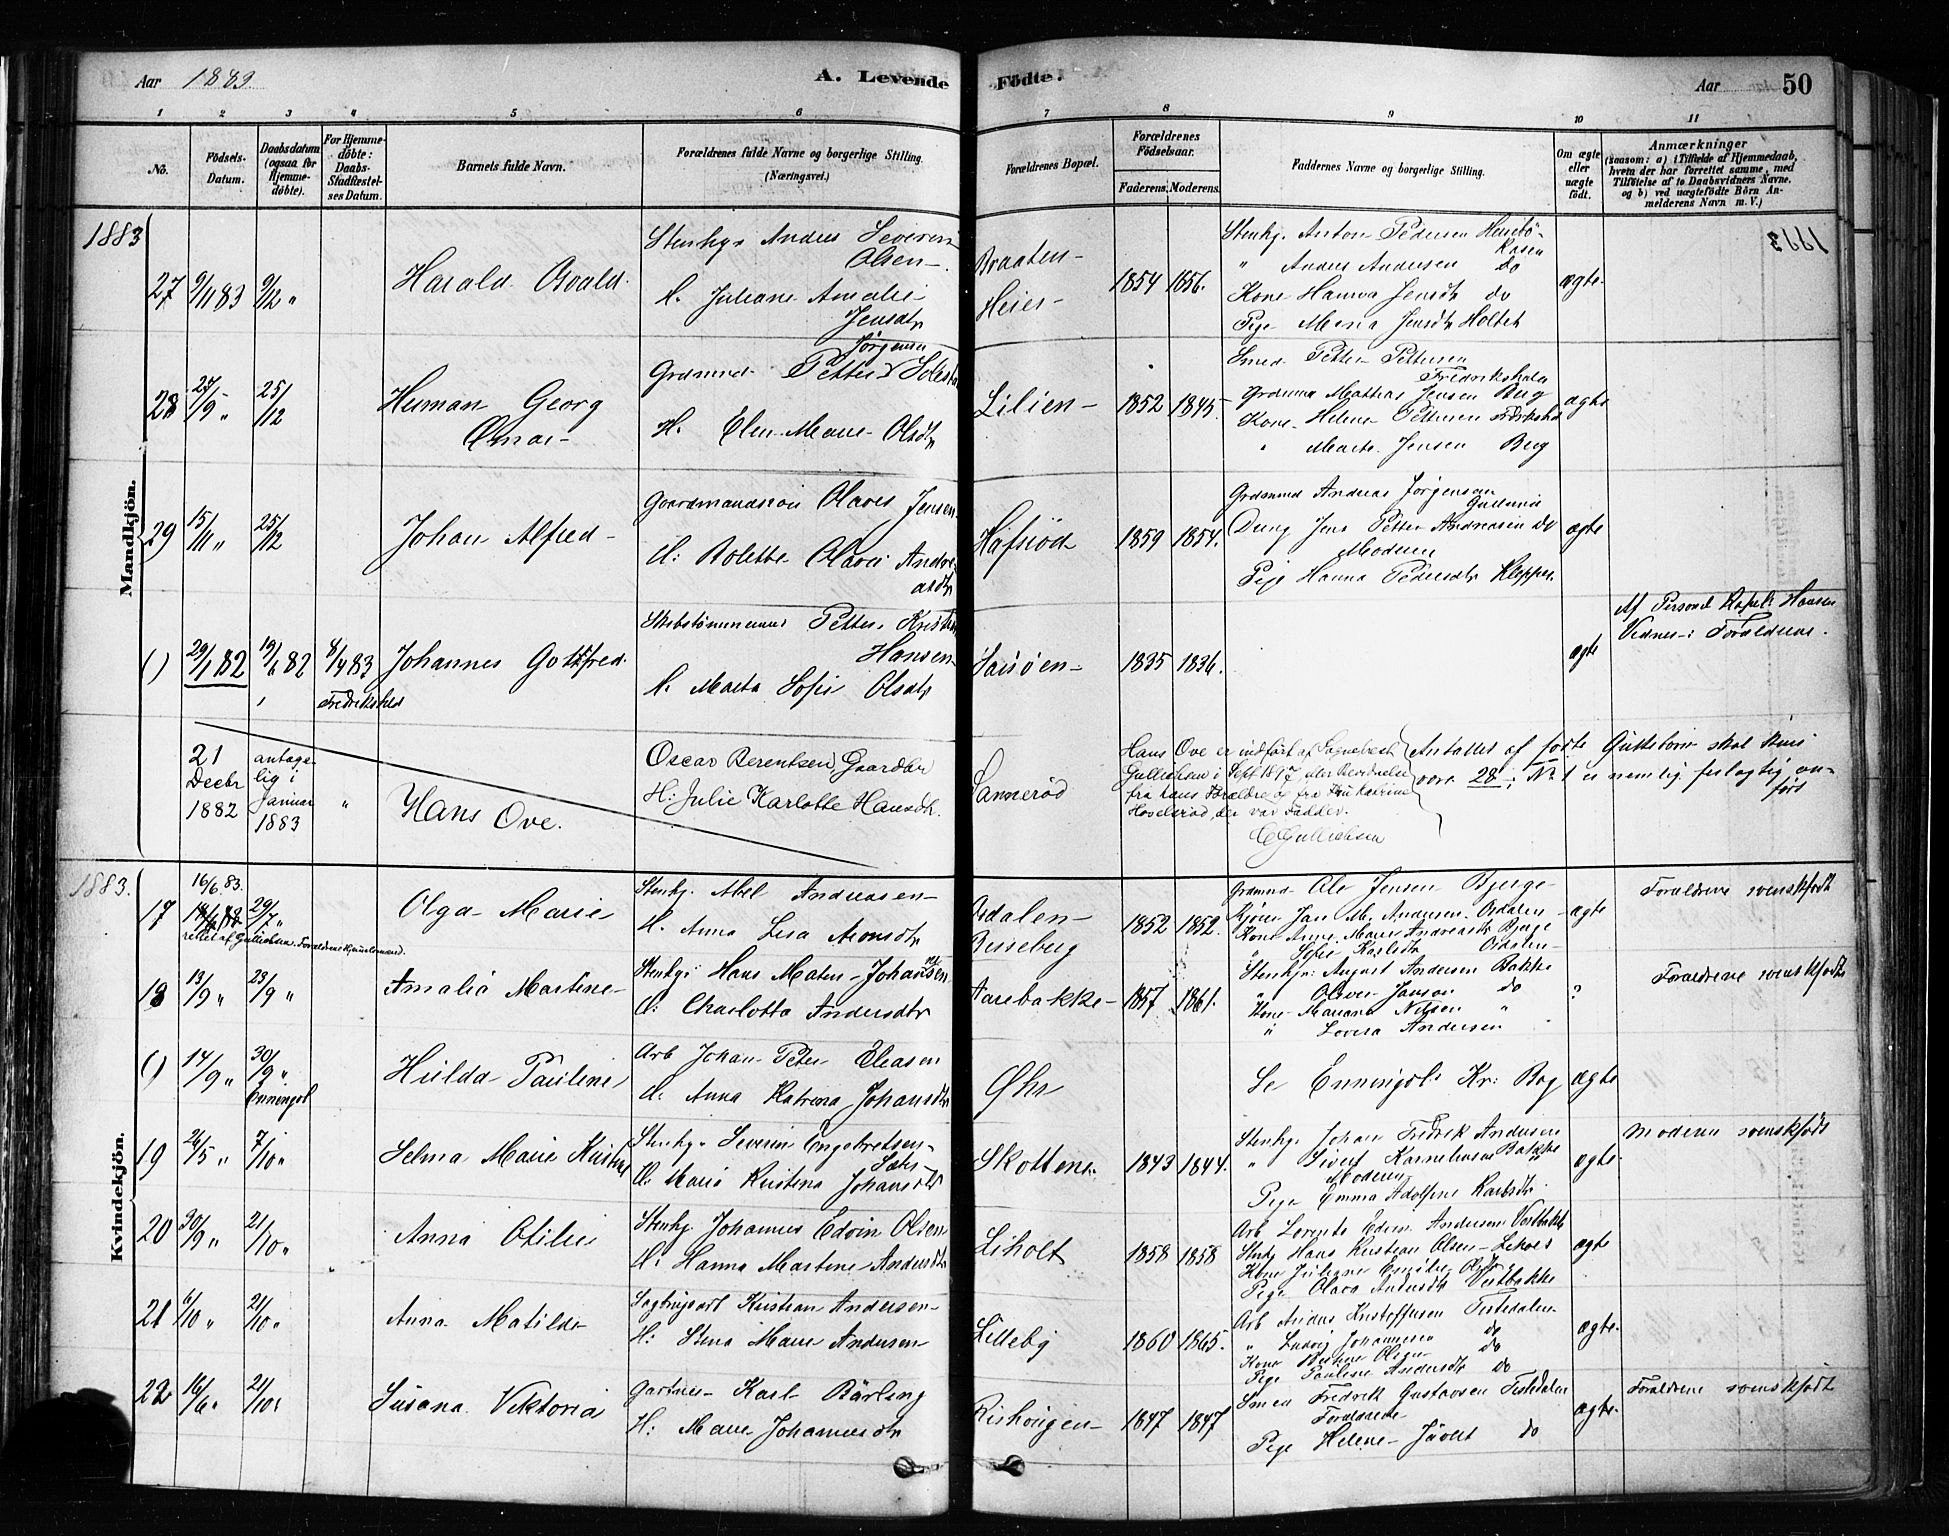 Aar 1883.
A. Levende
Födte.
Aar
50
1 2 3 4 5 6 7 8 9 10 11
No.
Födsels-
Datum.
Daabsdatum
(ogsaa for
Hjemme-
döbte).
For Hjemme-
döbte:
Daabs-
Stadfæstel-
ses Datum.
Barnets fulde Navn.
Forældrenes fulde Navne og borgerlige Stilling.
(Næringsvei.)
Forældrenes Bopæl.
Forældrenes
Födselsaar.
Faderens. Moderens.
Faddernes Navne og borgerlige Stilling.
Om ægte
eller
uægte
födt.
Anmærkninger
(saasom: a) i Tilfælde af Hjemmedaab,
hvem der har forrettet samme, med
Tilföielse af to Daabsvidners Navne,
og b) ved uægtefödte Börn An-
melderens Navn m. V.)
1883
Mandkjön.
27 9/11 83 9/12 "
Harald Osvald
Stenhg. Anders Severin
Olsen
H. Juliane Amalie
Jensdtr
Braaten-
Heier
1854 1856.
Stenhg. Anton Pedersen
" Anders Andersen do
Kone Hanna Jensdtr do
Pige Maria Jensdtr Holtet
ægte
28 27/9 " 25/12
Herman Georg
Omar
Grdmnd Petter Jörgensen
H. Elen Marie Olsdtr
Lilien
1852 1845
Smed Petter Pettersen
Fredrikshald
Grdmnd Mathias Jensen Berg
Kone Helene Pettersen
" Marte Jensen Berg
ægte
29 15/11 " 25/12
Johan Alfred
Gaardmandssön Olaves Jensen
H: Rolette Olava Andre-
asdtr
Hafsröd
1859 1854.
Grdmnd Andreas Jörgensen
Dreng Jens Petter Andreasen do
Moderen
Pige Hanna Pedersdtr Klepper
ægte
() 29/1 82 19/6 82 8/4 83
Fredrikshald
Johannes Gottfred
Skibstömmermand Petter Kristian
Hansen
H. Marta Sofie Olsdtr
1835 1836.
ægte
Af Personel Kapel: Hansen
Vidner: Forældrene.
21
Decbr
1882
antage-
lig i
Januar
1883
"
Hans Ove.
Oscar Berentsen, Gaardbr
H: Julie Karlotte Hansdtr.
Sannerød
Hans Ove er indført af Sogneprest
Gullichsen i Sept 1897 efter Beordrelse
fra hans Forældre og fra Fru Katrine
Hovelsrød, der var Fadder.
CGullichsen
Antallet af födte Guttebörn skal kuns
være 28; No 1 er nemlig feilagtig an-
fört
1883.
Kvindekjön.
17 16/6 83. 29/7 "
rettet af Gullichsen. Forældrenes Hjemmelsmænd.
Olga Marie
Stenhg. Abel Andreasen
H. Anna Lisa Aronsdtr
Osdalen
Berreberg
1852 1852.
Grdmnd Ole Jensen Bjerge
Kone Anne Marie Andreasdtr Bjerge
" Sofie Karlsdtr Osdalen
ægte
Forældrene svenskfödt
18 13/9 " 23/9 "
Amalia Martine
Stenhg: Hans Martin Johansen
H: Charlotta Andersdtr
Aarebakke
1857 1861.
Stenhgr: August Andersen Bakke
" Oliver Janson do
Kone Mariane Nilsen "
" Lovisa Andersen
?
Forældrene svenskfödte
() 14/9 " 30/9 "
Enningdl
Hilda Pauline
Arb Johan Peter Eliasen
H. Anna Katrina Johansdtr
Øhr
Se Enningdl. Kr: Bog
ægte
19 26/5 " 7/10 "
Selma Marie Kristine
Stenhg. Severin Engebretsen
H. Maria Kristina Johansdtr
Skottene
1843 1844.
Stenhg. Johan Fredrik Andersen
" Sivert Karneliusen Bakke
Moderen
Pige Emma Adolfine Karlsdtr
ægte
Moderen svenskfödt
20 30/9 " 21/10 "
Anna Otilie
Stenhg. Johannes Edvin Olsen
H. Hanna Martine Andersdtr
Liholt
1858 1858
Arb Lorents Edvin Andersen Vestbakke
Stenhg Hans Kristian Olsen Liholt
Kone Juliane Emilie Olsdtr
Pige Olava Andersdtr Vestbakke
ægte
21 6/10 " 21/10 "
Anna Matilde
Sagbrugsarb Kristian Andersen
H: Stina Marie Andersen
Lilleby
1860 1865.
Arb Anders Kristoffersen Tistedalen
" Ludvig Johannesen do
Kone Olsen do
Pige Pauline Andersdtr do
ægte
22 16/6 " 21/10 "
Susana Viktoria
Gartner Karl Bärling
H: Marie Johannesdtr
Rishougen
1847 1847
Smed Fredrik Gustavsen Tistedalen
Forældrene
Pige Helene Sivert do
ægte
Forældrene svenskfödt